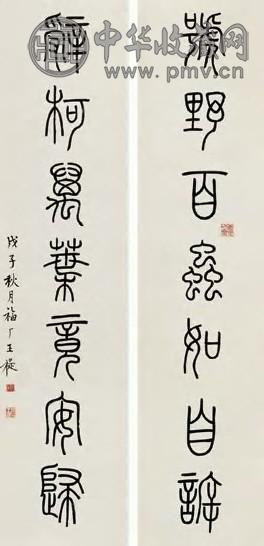 中华收藏网
www.pmv.cn
號野百蟲如自訴
辭柯萬葉竟安歸
戊子秋月福厂王禔